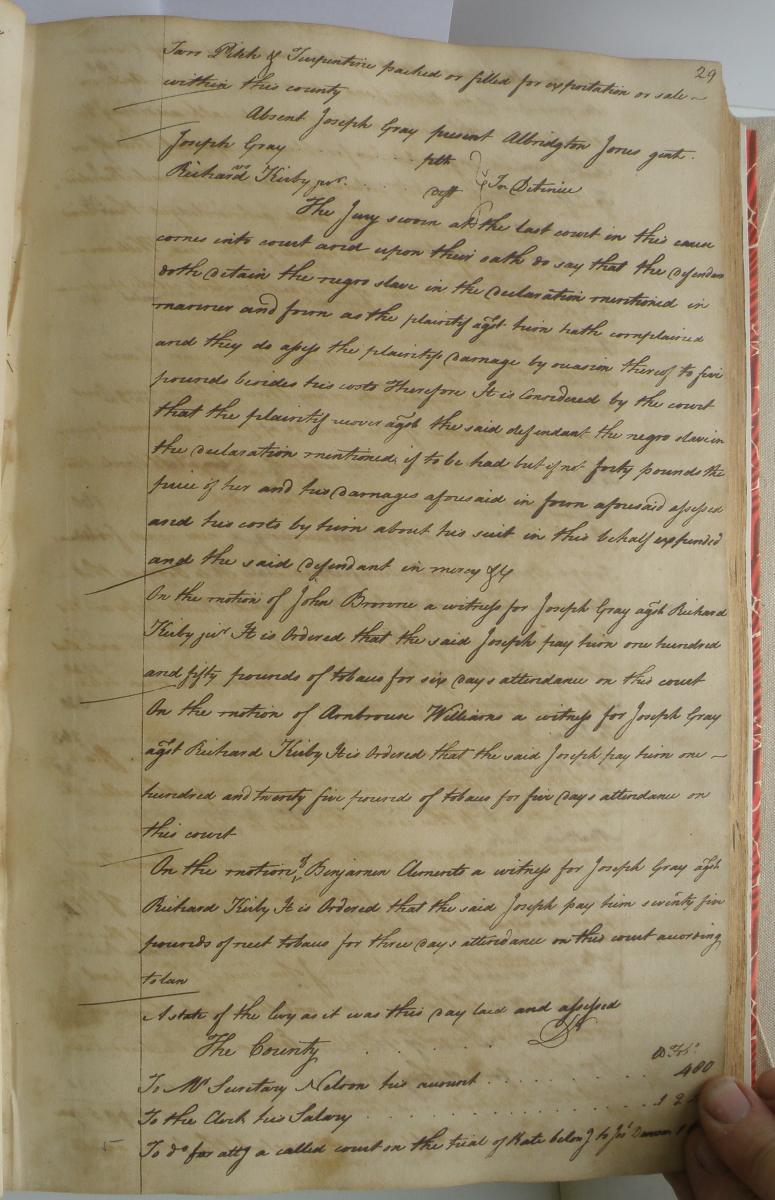 29
Tarr Pitch & Turpentine packed or filled for exportation or sale
within this county
Absent Joseph Gray present Albridgton Jones gent.
Joseph Gray plth
vs In Detinue
Richard Kirby jnr. Deft
The Jury sworn at the last court in this cause
comes into court and upon their oath do say that the Defendan
doth Detain the negro slave in the Declaration mentioned in
manner and form as the plaintif agst him hath complained
and they do assess the plaintifs Damage by occasion thereof to five
pounds besides his costs Therefore It is Considered by the court
that the plaintif recover agst the said defendant the negro slave in
the Declaration mentioned if to be had but if not forty pounds the
price of her and his Damages aforesaid in form aforesaid assessed
and his costs by him about his suit in this behalf expended
and the said Defendant in mercy &c
On the motion of John Browne a witness for Joseph Gray agst Richard
Kirby jnr It is Ordered that the said Joseph pay him one hundred
and fifty pounds of tobacco for six Days attendance on this court
On the motion of Ambrouse Williams a witness for Joseph Gray
agst Richard Kirby It is Ordered that the said Joseph pay him one
hundred and twenty five pound of tobacco for five Days attendance on
this court
On the motion of Benjamen Clements a witness for Joseph Gray agst
Richard Kirby It is Ordered that the said Joseph pay him seventy five
pounds of neet tobacco for three Days attendance on this court according
to law
A state of the levy as it was this Day laid and assessed
The County Dr
To Mr Secretary Nelson his account 480
To the Clerk his Salary
To do for attg a called court on the trial of Kate belong to Jos